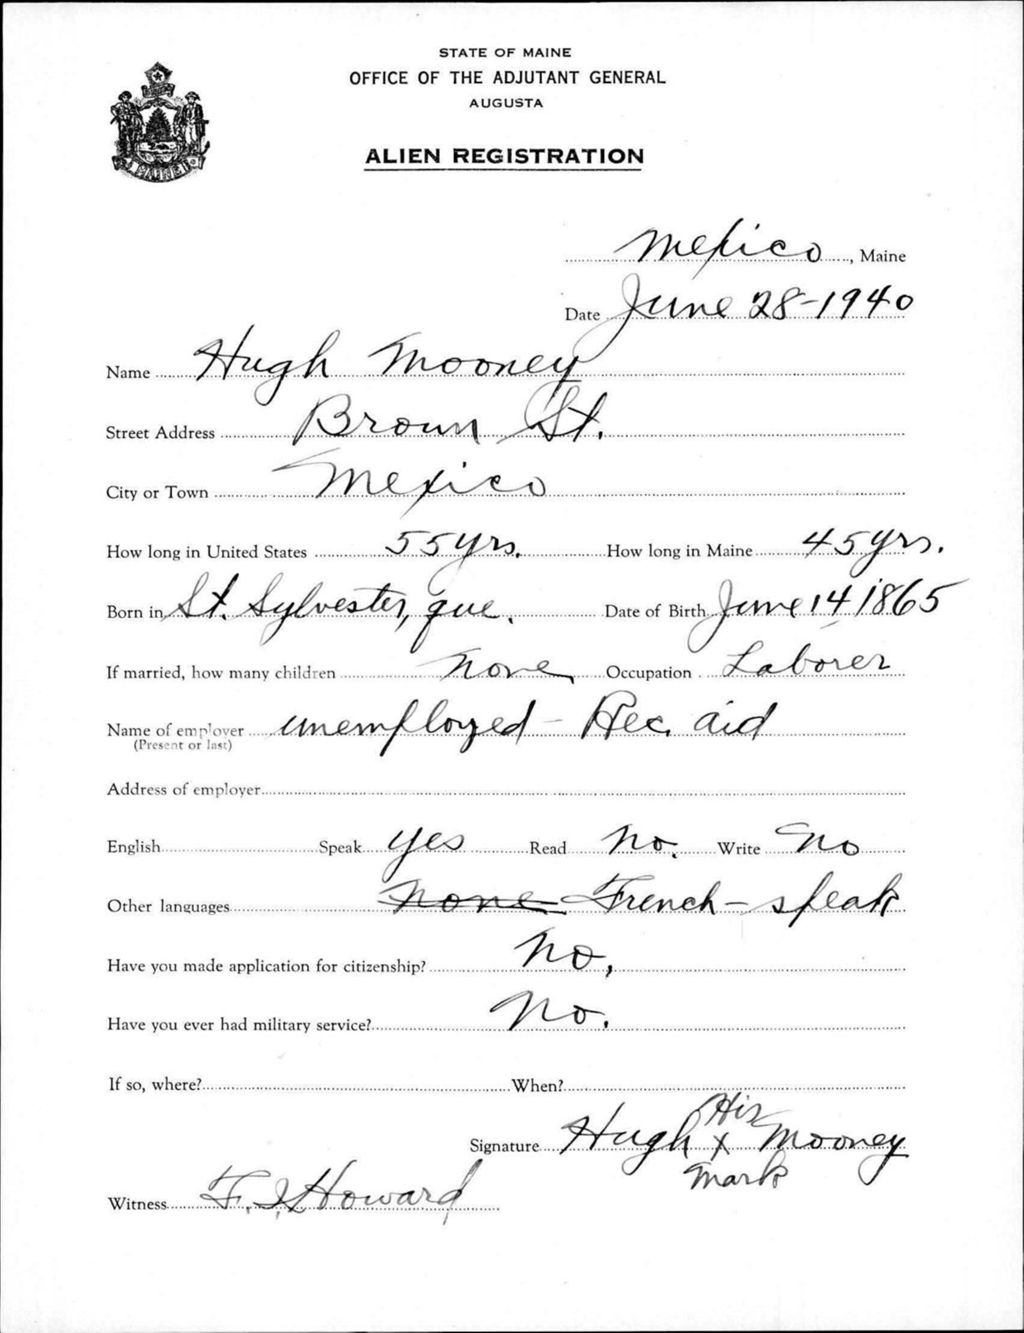 STATE OF MAINE
OFFICE OF THE ADJUTANT GENERAL
AUGUSTA
ALIEN REGISTRATION
Mexico, Maine
Date June 28-1940
Name Hugh Mooney
Street Address Brown St.
City or Town Mexico
How long in United States 55 yrs. How long in Maine 45 yrs.
Born in St. Sylvester, Que. Date of Birth June 14, 1865
If married, how many children None Occupation Laborer
Name of employer unemployed - Rec. aid
(Present or last)
Address of employer
English Speak yes Read No. Write No
Other languages None French - speak
Have you made application for citizenship? No,
Have you ever had military service? No.
If so, where? When?
His
Signature Hugh X Mooney
Mark
Witness F. I. Howard